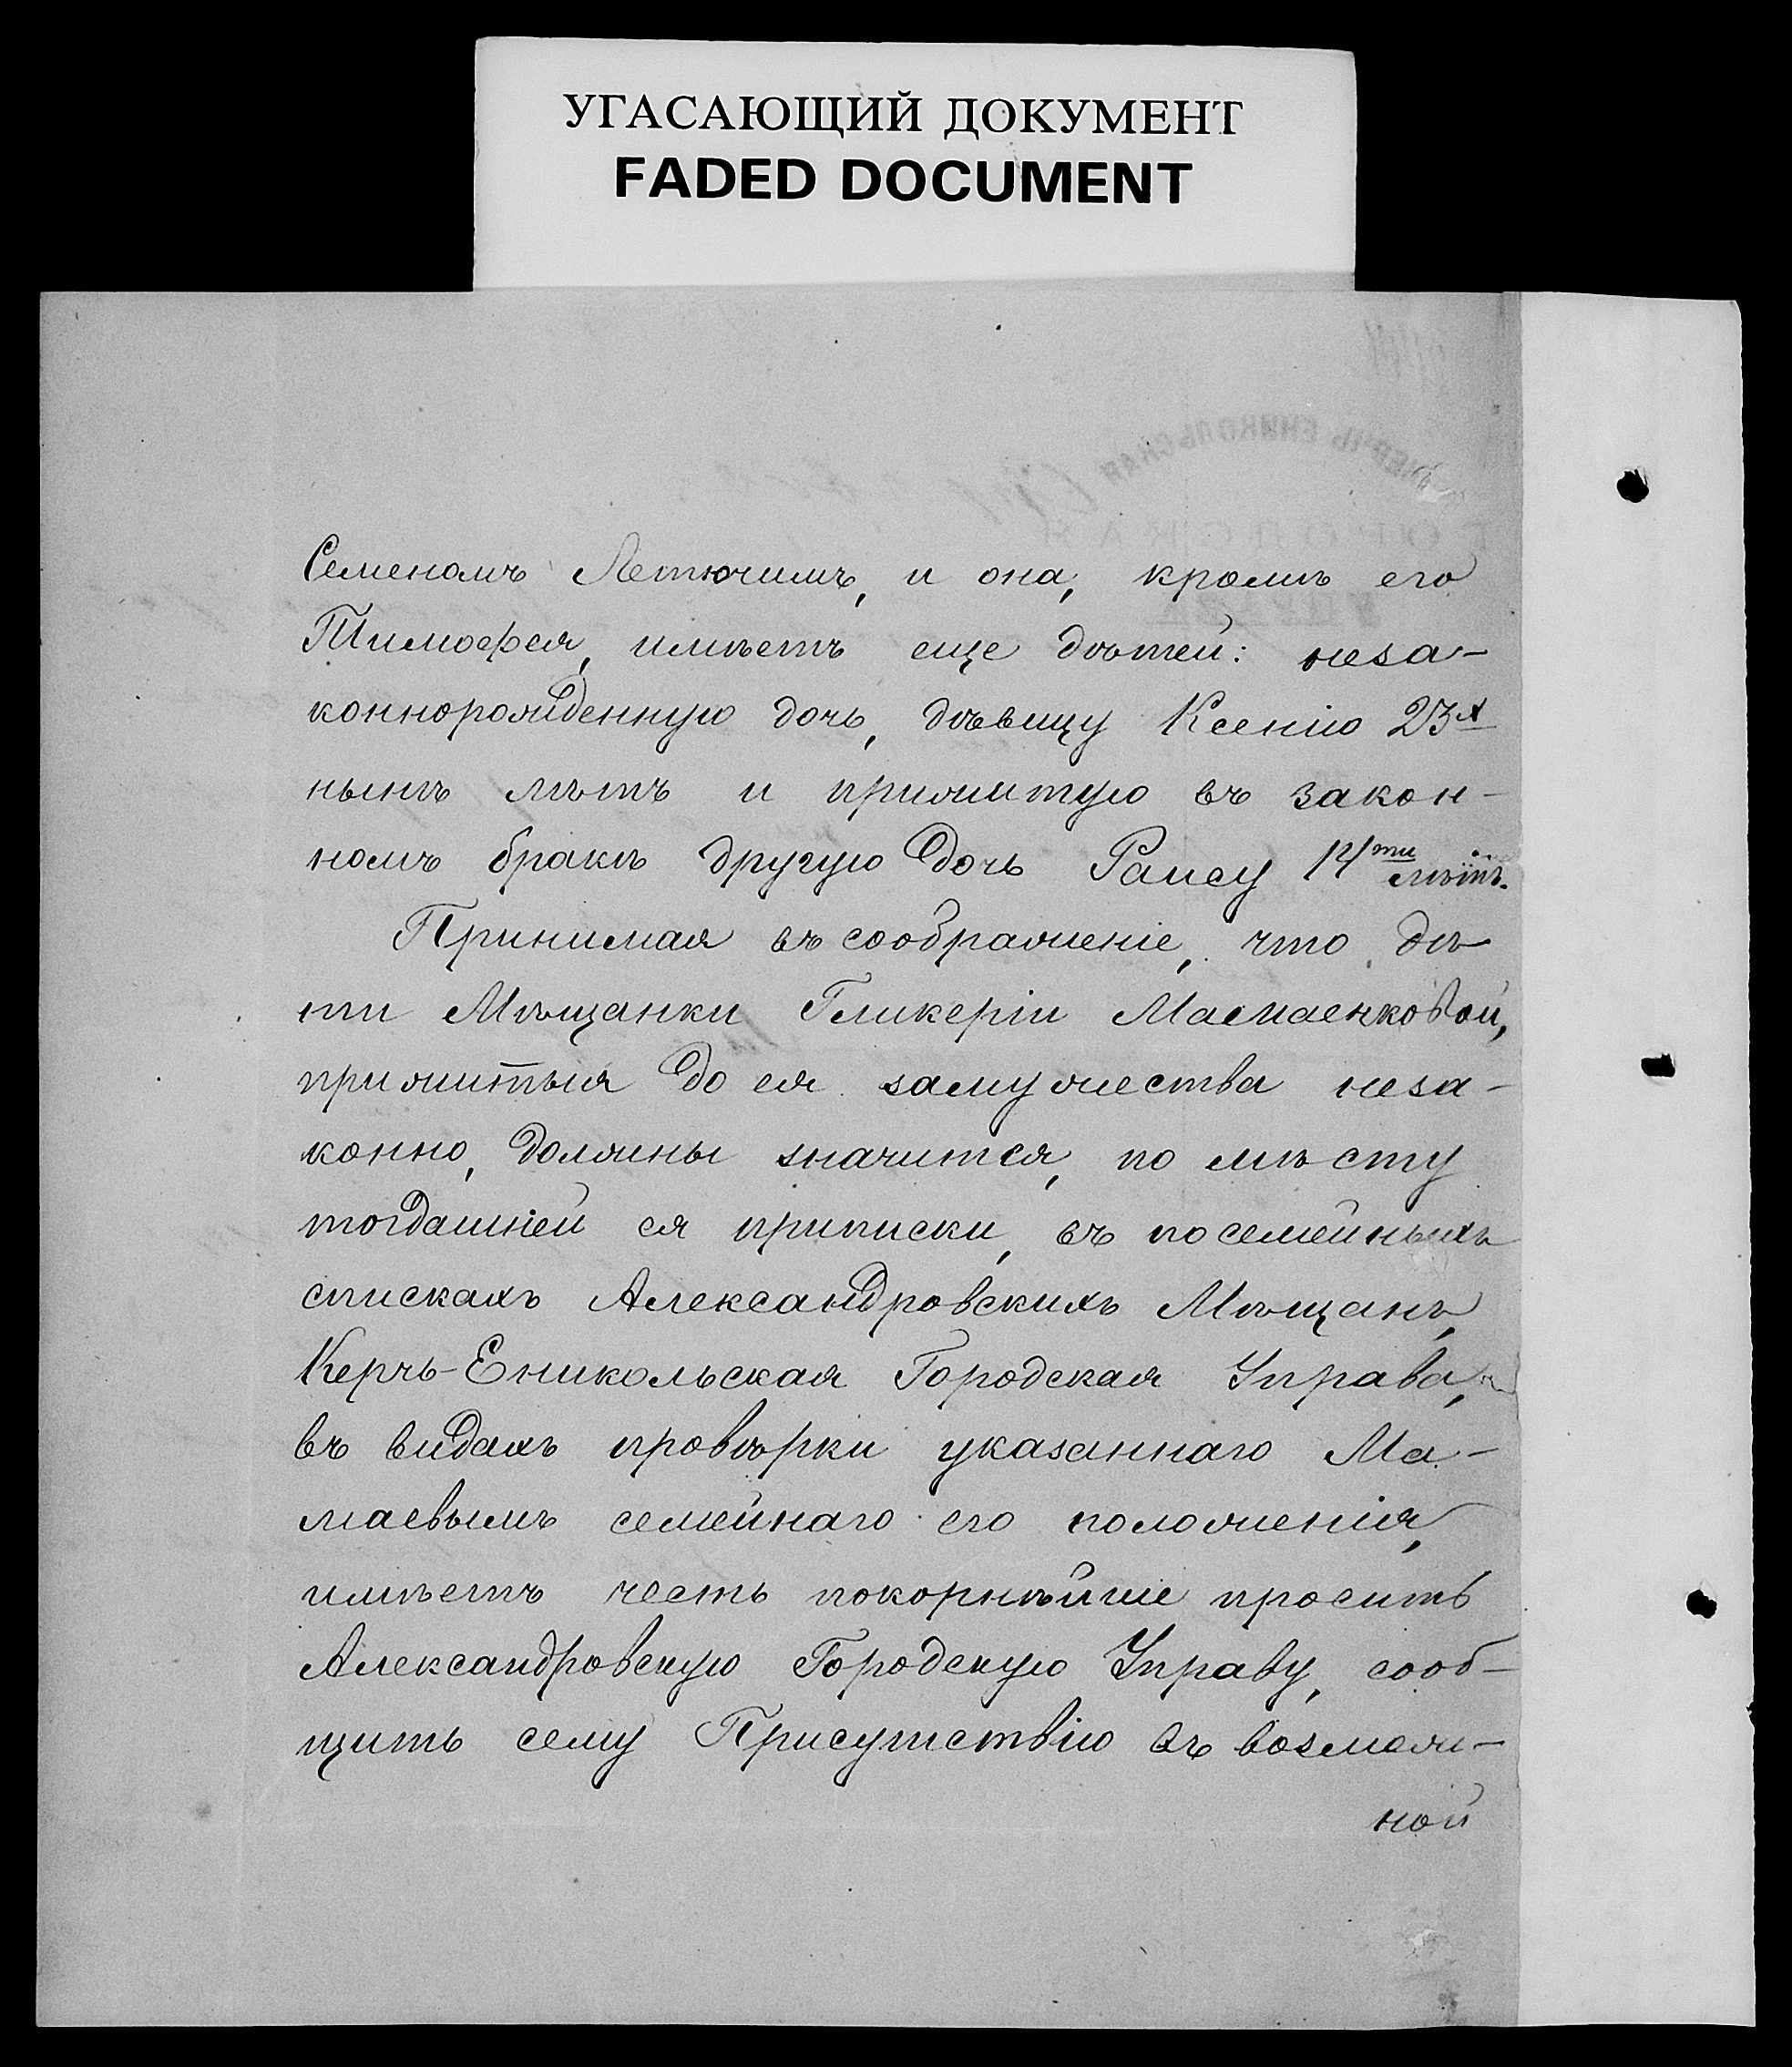 УГАСАЮЩИЙ ДОКУМЕНТ
FADED DOCUMENT
Семеномъ Летючимъ, и она, кромѣ его
Тимофея, имѣетъ еще дѣтей: неза-
коннорожденную дочь, дѣвицу Ксенію 23х
нынѣ лѣтъ и прижитую въ закон-
номъ бракѣ другую дочь Раису 14ти лѣтъ.
Принимая въ соображеніе, что дѣ-
ти Мѣщанки Гликеріи Мамаенковой,
прижитыя до ея замужества неза-
конно, должны значится, по мѣсту
тогдашней ея приписки, въ посемейныхъ
спискахъ Александровскихъ Мѣщанъ,
Керчь-Еникольская Городская Управа,
въ видахъ провѣрки указаннаго Ма-
маевымъ семейнаго его положенія,
имѣетъ честь покорнѣйше просить
Александровскую Городскую Управу, сооб-
щить сему Присутствію въ возмож-
ной